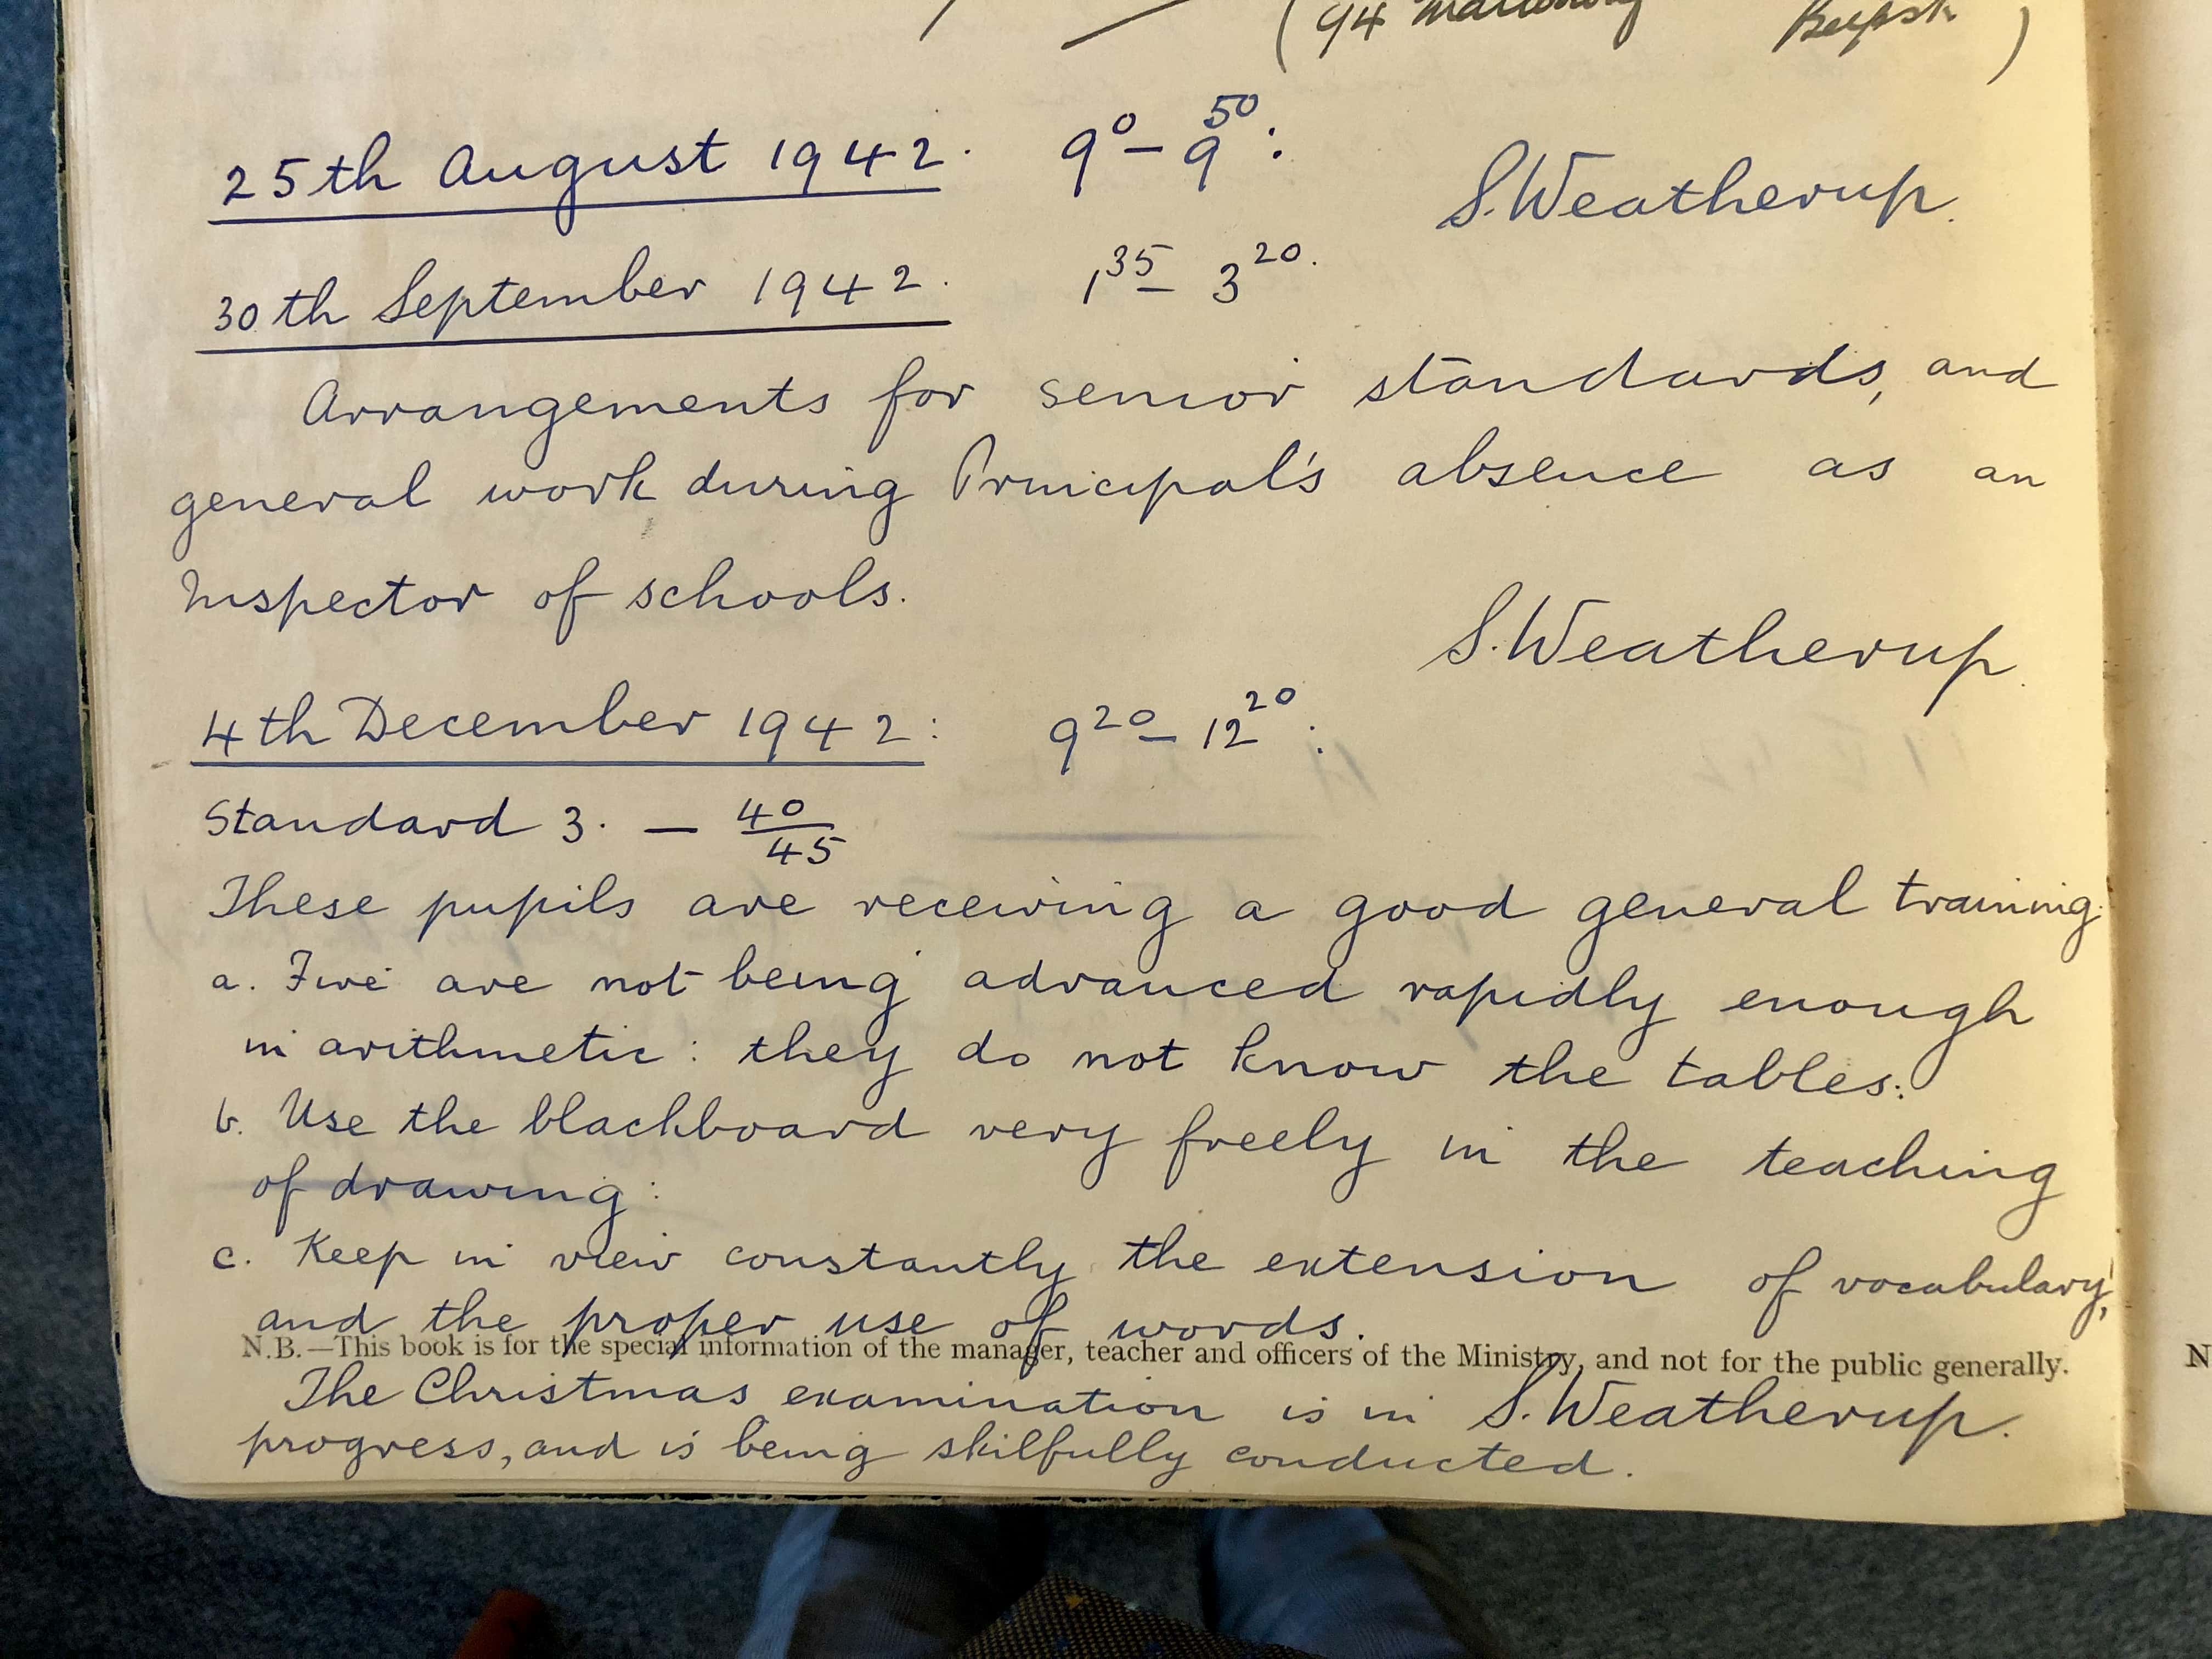 (94
25th August 1942. 9⁰ – 9⁵⁰:
S. Weatherup.
30th September 1942. 1³⁵ – 3²⁰.
Arrangements for senior standards, and
general work during Principal's absence as an
Inspector of schools.
S. Weatherup.
4th December 1942: 9²⁰ – 12²⁰:
Standard 3. — 40/45
These pupils are receiving a good general training:
a. Five are not being advanced rapidly enough
in arithmetic: they do not know the tables:
b. Use the blackboard very freely in the teaching
of drawing:
c. Keep in view constantly the extension of vocabulary,
and the proper use of words.
N.B.—This book is for the special information of the manager, teacher and officers of the Ministry, and not for the public generally.
N
The Christmas examination is in S. Weatherup.
progress, and is being skilfully conducted.